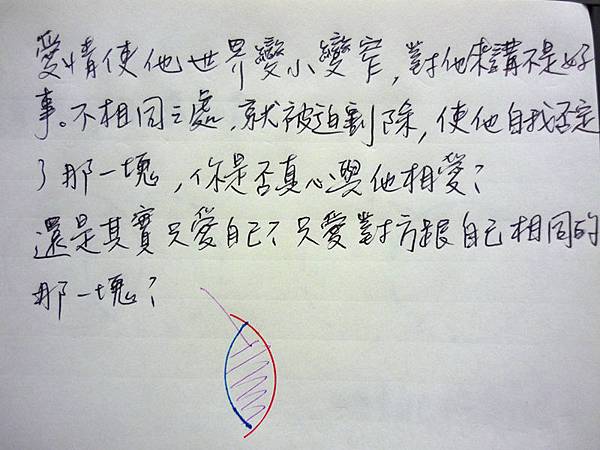 愛情使他世界變小變窄，對他來講不是好
事。不相同之處，就被迫割除，使他自我否定
了那一塊，你是否真心與他相愛？
還是其實只愛自己？只愛對方跟自己相同的
那一塊？